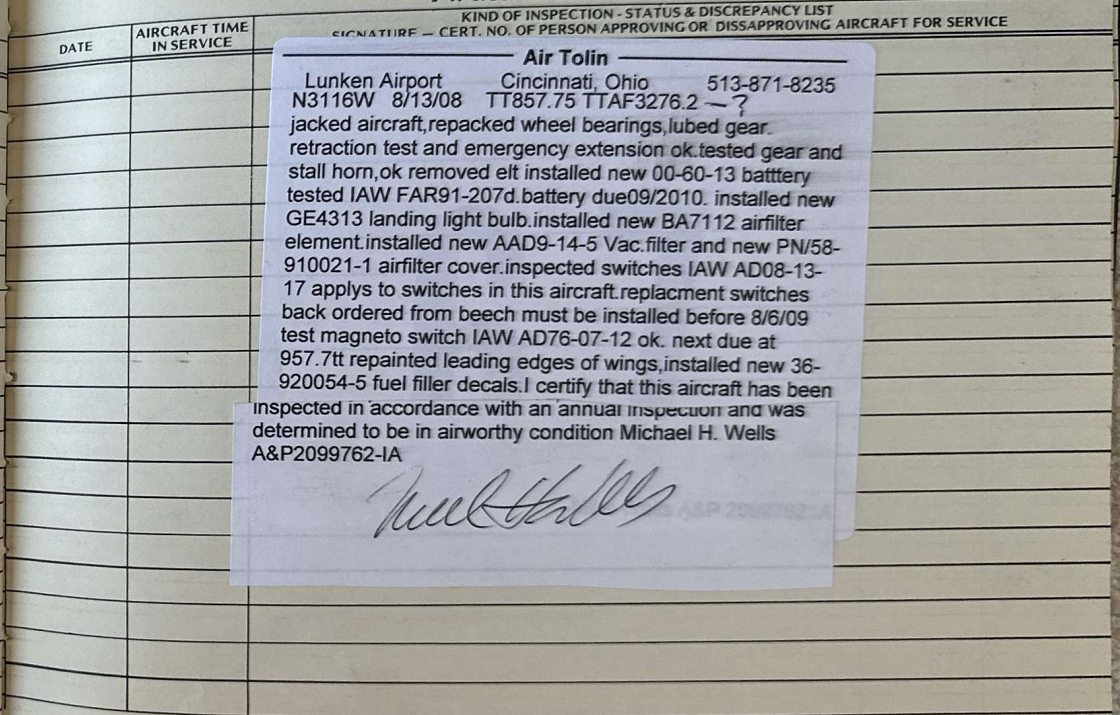 KIND OF INSPECTION - STATUS & DISCREPANCY LIST
SIGNATURE — CERT. NO. OF PERSON APPROVING OR DISSAPPROVING AIRCRAFT FOR SERVICE
DATE
AIRCRAFT TIME
IN SERVICE
Air Tolin
Lunken Airport Cincinnati, Ohio 513-871-8235
N3116W 8/13/08 TT857.75 TTAF3276.2 —?
jacked aircraft,repacked wheel bearings,lubed gear.
retraction test and emergency extension ok.tested gear and
stall horn,ok removed elt installed new 00-60-13 batttery
tested IAW FAR91-207d.battery due09/2010. installed new
GE4313 landing light bulb.installed new BA7112 airfilter
element.installed new AAD9-14-5 Vac.filter and new PN/58-
910021-1 airfilter cover.inspected switches IAW AD08-13-
17 applys to switches in this aircraft.replacment switches
back ordered from beech must be installed before 8/6/09
test magneto switch IAW AD76-07-12 ok. next due at
957.7tt repainted leading edges of wings,installed new 36-
920054-5 fuel filler decals.I certify that this aircraft has been
inspected in accordance with an annual inspection and was
determined to be in airworthy condition Michael H. Wells
A&P2099762-IA
A&P 2099762IA